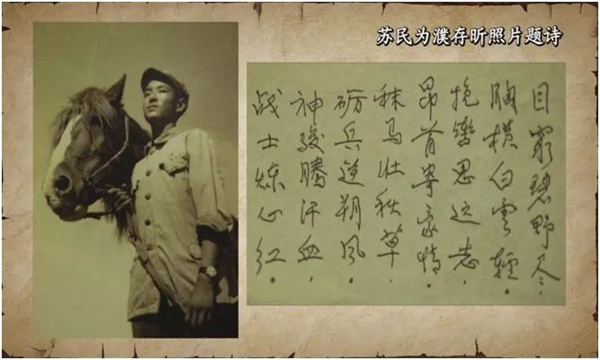 苏民为濮存昕照片题诗
目穷碧野尽，
胸横白雲轻。
辔思远志，
昂首寄豪情。
秣马壮秋草，
砺兵迎朔风。
神骏腾汗血，
战士炼心红。